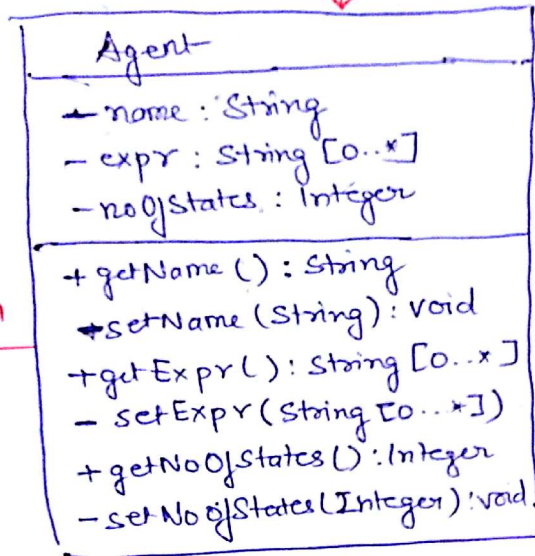 Agent
- name : String
- expr : String [0..*]
- noOfStates : Integer
+ getName () : String
+ setName (String) : void
+ getExpr () : String [0..*]
- setExpr (String [0...*])
+ getNoOfStates () : Integer
- setNoOfStates (Integer) : void.